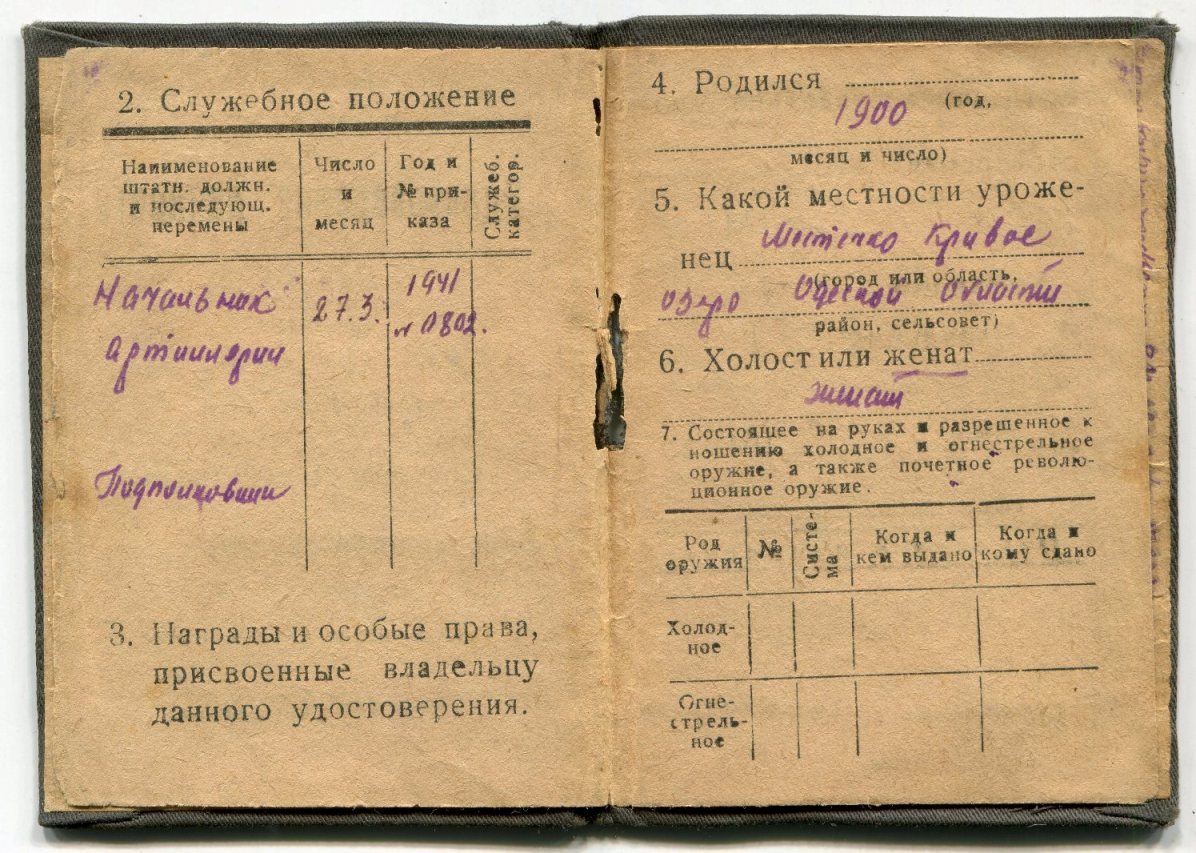 2. Служебное положение
Наименование
штатн. должн.
и последующ.
перемены
Число
и
месяц
Год и
№ при-
каза
Служеб.
категор.
Начальник
Артиллерии
27.3.
1941
№ 0802.
Подполковник
3. Награды и особые права,
присвоенные владельцу
данного удостоверения.
4. Родился
1900
(год,
месяц и число)
5. Какой местности уроже-
нец Местечко Кривое
(город или область,
озеро Одесской области
район, сельсовет)
6. Холост или женат
женат
7. Состоящее на руках и разрешенное к
ношению холодное и огнестрельное
оружие, а также почетное револю-
ционное оружие.
Род
оружия
№
Систе-
ма
Когда и
кем выдано
Когда и
кому сдано
Холод-
ное
Огне-
стрель-
ное